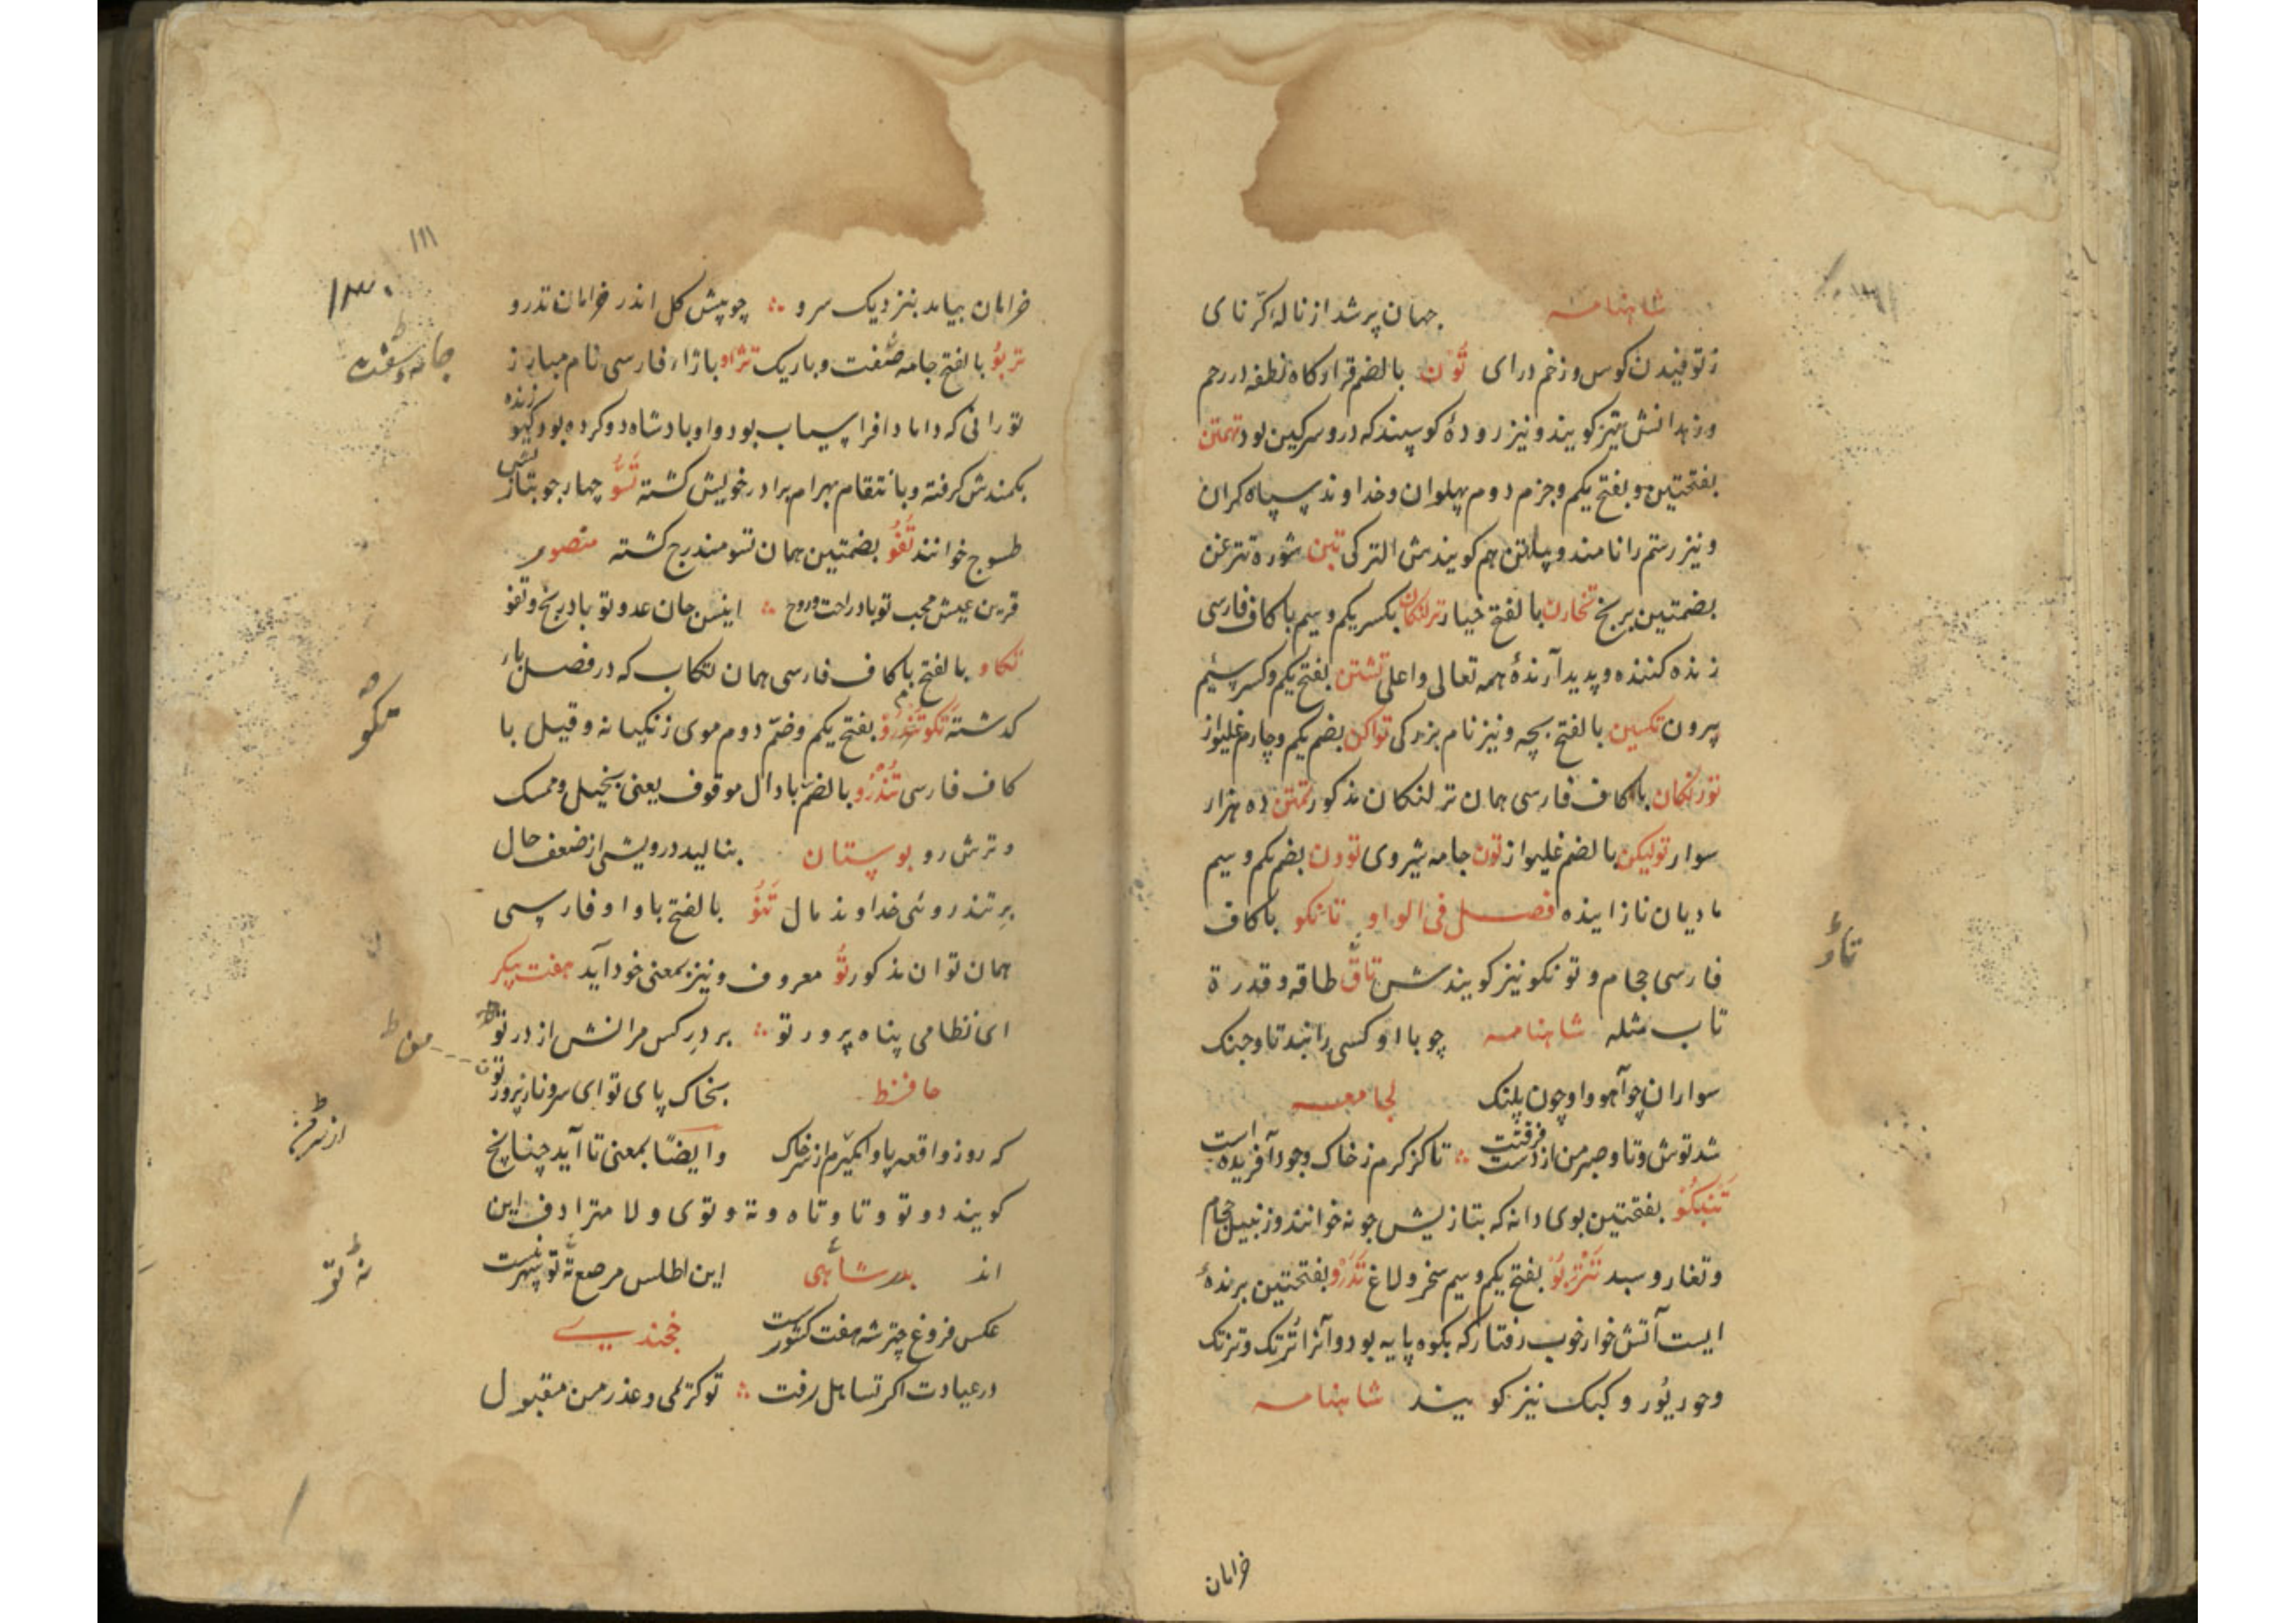 شاهنامه جهان پر شد از ناله کرّنای
ز توفیدن کوس و زخم درای تُون بالضم قرارکاه نطفه در رحم
و زهدانش نیز کویند و نیز رودهٔ کوسپند که درو سرکین بود تهمتن
بفتحتین و بفتح یکم و جزم دوم پهلوان و خداوند سپاه کران
و نیز رستم را نامند و پیلتن هم کویندش الترکی تین
بضمتین برنج تخارن بالفتح خیار ترلنکان بکسر یکم و سیم با کاف فارسی
زنده کننده و پدید آرندهٔ همه تعالی و اعلی تشتن بفتح یکم و کسر سیم
پیرون تکسین بالفتح بچه و نیز نام بزرکی تواکن بضم یکم و چارم غلیواز
تورنکان با کاف فارسی همان ترلنکان مذکور تمتن ده هزار
سوار تولیکن بالضم غلیواز تون جامه شیروی توون بضم یکم و سیم
مادیان نازاینده فصل فی الواو تانکو با کاف
فارسی حجام و تونکو نیز کویندش تاو طاقه و قدرة
تاب مثله شاهنامه چو با او کسی را نبد تاو جنک
سواران چو آهو و او چون پلنک لجامعه
شد توش و تاو صبر من از دست فرقتت ∴ تا کز کرم ز خاک وجود آفریده است
تنبکو بفتحتین بوی دانه که بتازیش جونه خوانند و زنبیل حجام
و تغار و سبد تنزبو بفتح یکم و سیم سخر و لاغ تذرو بفتحتین پرندهٔ
ایست آتش خوار خوب رفتار که بکوه پایه بود و آنرا تزتک و ترتک
و جور پور و کبک نیز کویند شاهنامه
تاوٌ
خرامان
خرامان بیامد بنزدیک سرو ∴ چو پیش کل اندر خرامان تذرو
تربو بالفتح جامه صفت و باریک تژاو با زاء فارسی نام مبارز
تورانی که داماد افراسیاب بود و او بادشاه دو کرده بود کیو زنده
بکمندش کرفته و بانتقام بهرام برادر خویش کشته تسو چهار جو بتازیش
طسوج خوانند تفو بضمتین همان تسو مندرج کشته منصور
قرین عیش محب تو باد راحت و روح ∴ انیس جان عدو تو باد رنج و تفو
تکاو بالفتح با کاف فارسی همان تکاب که در فصل با
کذشته تکو بفتح یکم و ضم دوم موی زنکیانه و قیل با
کاف فارسی تندرو بالضم با دال موقوف یعنی بخیل و ممسک
و ترش رو بوستان بنالید درویشی از ضعف حال
بر تندروئی خداوند مال تَنَو بالفتح با واو فارسی
همان توان مذکور تو معروف و نیز بمعنی خود آید هفت پیکر
ای نظامی پناه پرور تو ∴ بر در کس مرانش از در تو
حافظ بخاک پای تو ای سرو نازپرور تو
که روز واقعه پا وا مکیرم از سر خاک و ایضًا بمعنی تا آید چنانچ
کویند دو تو و تا و تاه و ته و توی و لا مترادف این
اند بدر شاهی این اطلس مرصع نه تو سپهر نیست
عکس فروغ چتر شه هفت کشورست خجندی
در عیادت اکر تساهل رفت ∴ تو کرمی و عذر من مقبول
۱۱۱
۱۳۰
تکو
نه تو